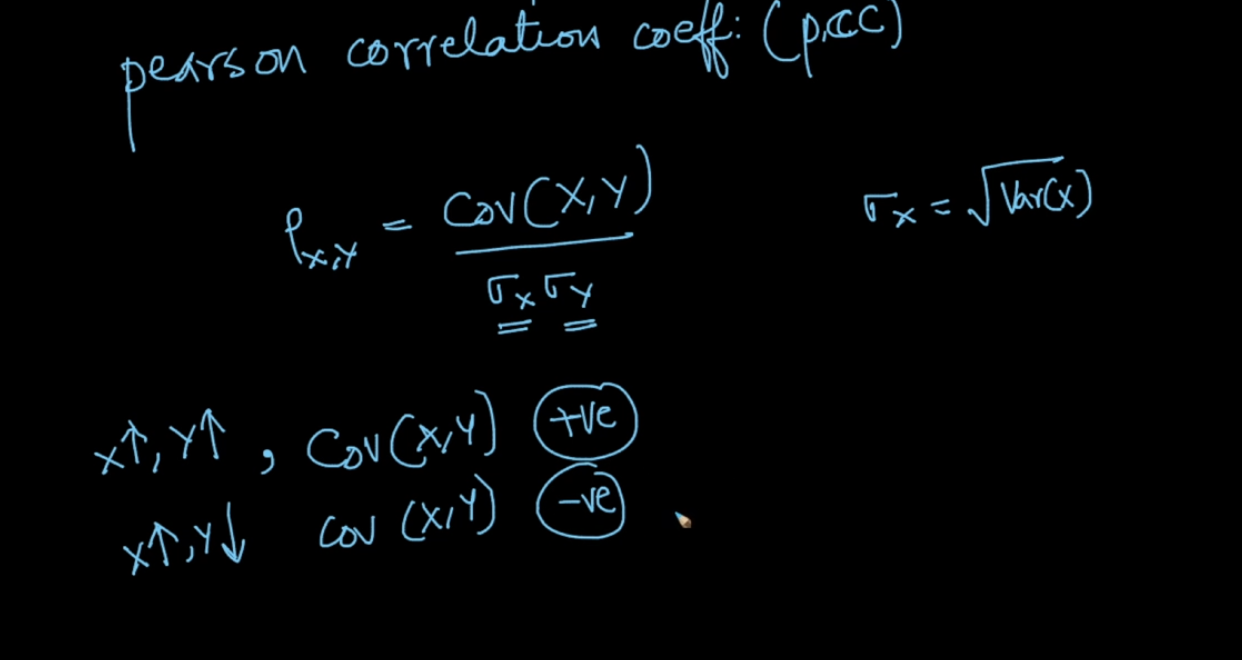 pearson correlation coeff: (pcc)
ρx,y = Cov(X,Y) / σx σy
σx = √Var(x)
x↑, y↑, Cov(X,Y) +ve
x↑, y↓ Cov (X,Y) -ve